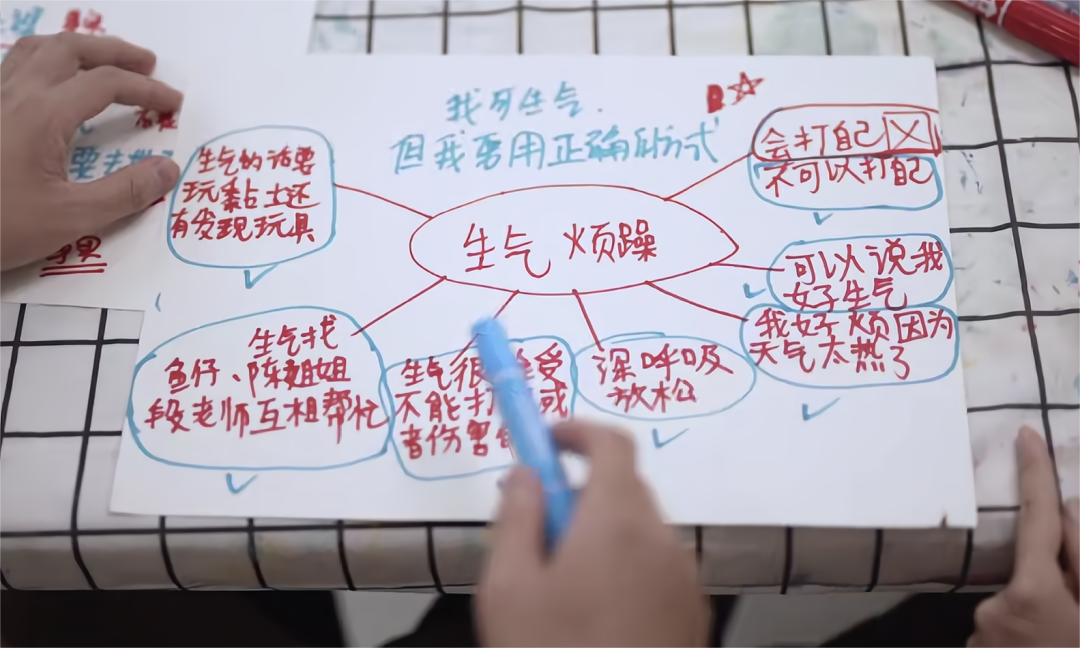 我可生气.
但我要用正确的方式
生气 烦躁
生气的话要
玩黏土还
有发现玩具
会打自己
不可以打自己
可以说我
好生气
我好烦因为
天气太热了
生气找
鱼仔、陈姐姐
段老师互相帮忙
生气很 受
不能打 或
者伤害
深呼吸
放松